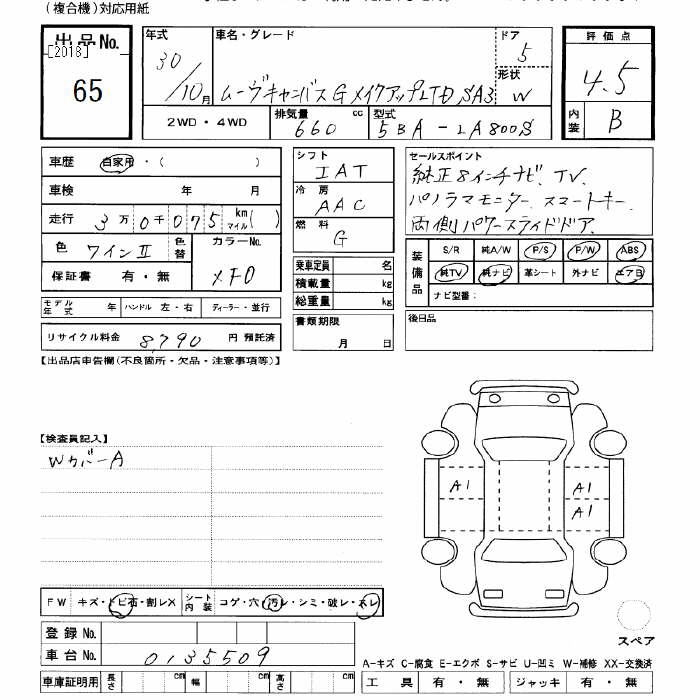 (複合機)対応用紙
出品No. [2018] 65
年式 30/10月
車名・グレード ムーヴキャンバスGメイクアップLTD SA3
ドア 5
形状 W
評価点 4.5
内装 B
2WD・4WD
排気量 660 cc
型式 5BA-LA800S
車歴 自家用・( )
車検 年 月
走行 3万0千075 km マイル( )
色 ワインII 色替 カラーNo. XF0
保証書 有・無
モデル年式 年 ハンドル 左・右 ディーラー・並行
リサイクル料金 8,790 円 預託済
シフト IAT
冷房 AAC
燃料 G
乗車定員 名
積載量 kg
総重量 kg
書類期限 月 日
セールスポイント
純正8インチナビ、TV、
パノラマモニター、スマートキー、
両側パワースライドドア.
装備品 S/R 純A/W P/S P/W ABS
純TV 純ナビ 革シート 外ナビ エア日
ナビ型番:
後日品
【出品店申告欄(不良箇所・欠品・注意事項等)】
【検査員記入】
WカバーA
A1 A1
A1
FW キズ・トビ石・割レX シート内装 コゲ・穴・汚レ・シミ・破レ・スレ
登録No.
車台No. 0135509
車庫証明用 長さ cm 幅 cm 高さ cm
スペア
A-キズ C-腐食 E-エクボ S-サビ U-凹ミ W-補修 XX-交換済
工具 有・無 ジャッキ 有・無